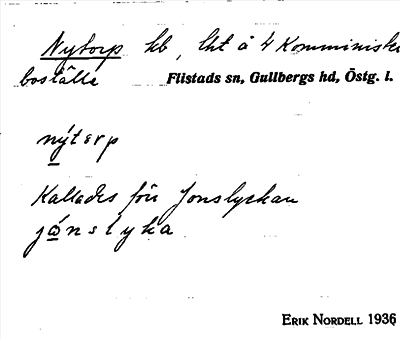 Nytorp hb, lht å 4 Komminister
boställe Flistads sn, Gullbergs hd, Östg. l.
nýtɛrp
Kallades förr Jonslyckan
jónslyka
ERIK NORDELL 1936